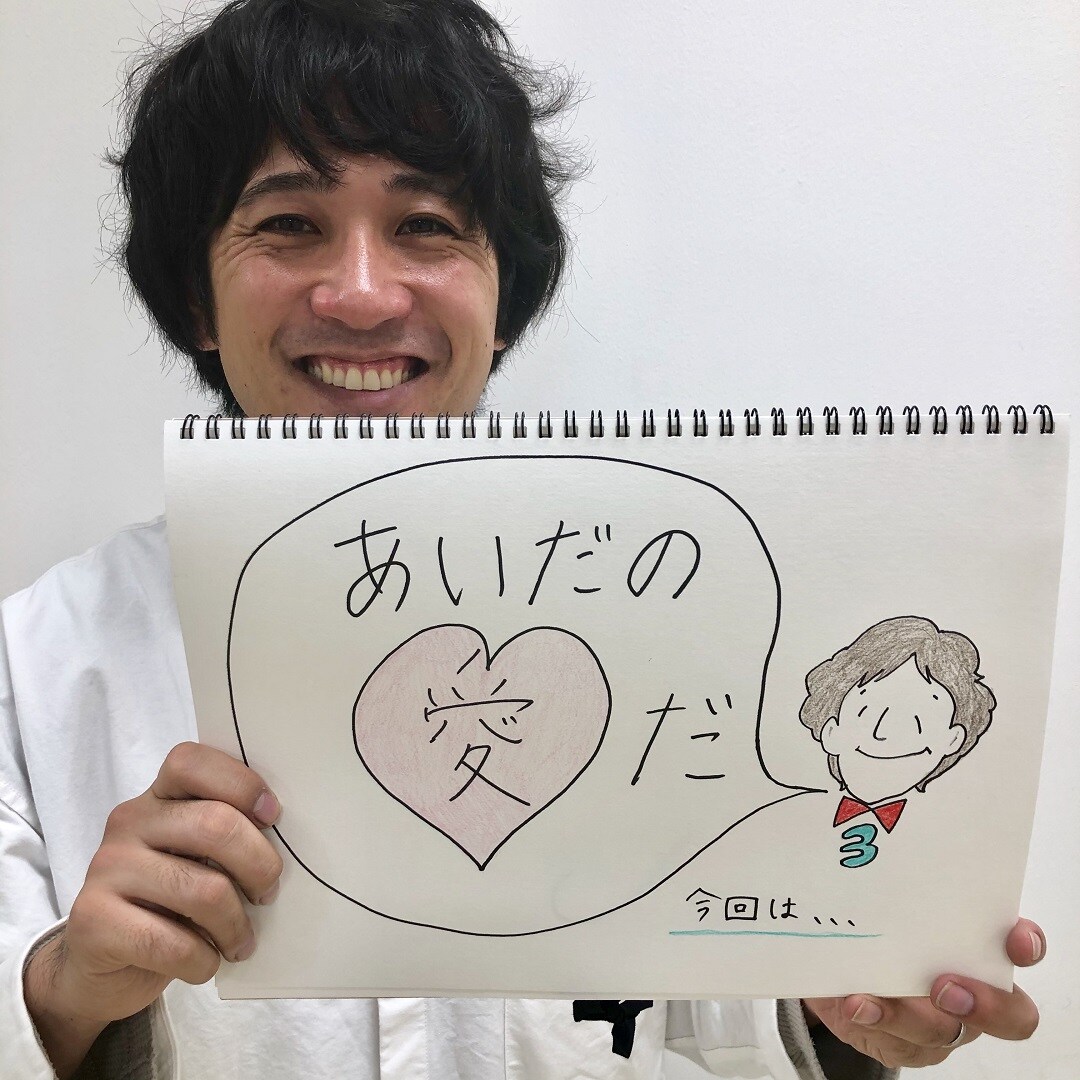 あいだの
愛だ
3
今回は、、、